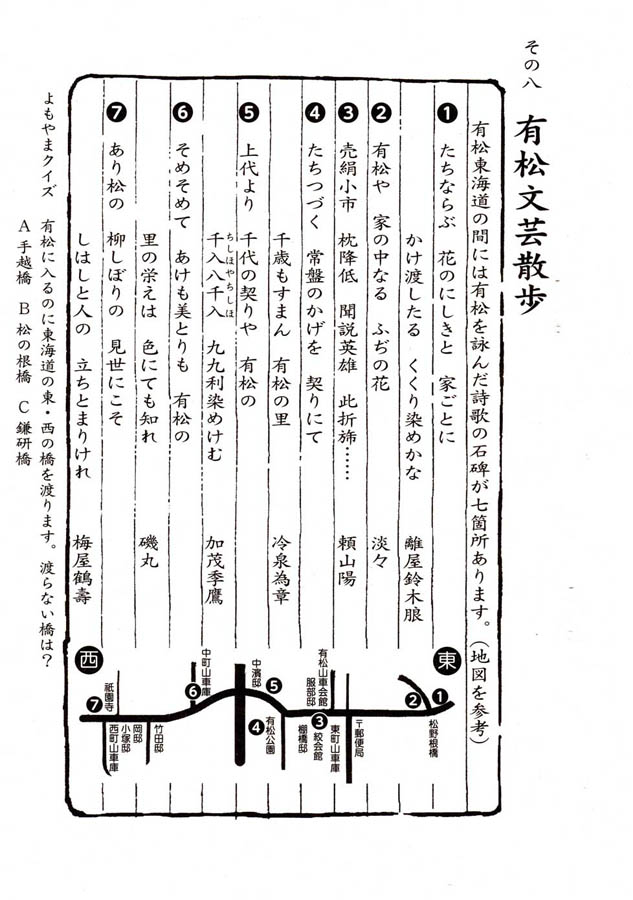 その八　有松文芸散歩
有松東海道の間には有松を詠んだ詩歌の石碑が七箇所あります。（地図を参考）
❶　たちならぶ　花のにしきと　家ごとに
かけ渡したる　くくり染めかな　離屋鈴木朖
❷　有松や　家の中なる　ふぢの花　淡々
❸　売絹小市　枕降低　聞説英雄　此折旆……　頼山陽
❹　たちつづく　常盤のかげを　契りにて
千歳もすまん　有松の里　冷泉為章
❺　上代より　千代の契りや　有松の
千入八千入　九九利染めけむ　加茂季鷹
ちしほやちしほ
❻　そめそめて　あけも美とりも　有松の
里の栄えは　色にても知れ　磯丸
❼　あり松の　柳しぼりの　見世にこそ
しはしと人の　立ちとまりけれ　梅屋鶴壽
東
❶
松野根橋
❷
〒郵便局
東町山車庫
有松山車会館
服部邸
❸
絞会館
棚橋邸
❺
有松公園
❹
中濱邸
中町山車庫
❻
竹田邸
岡邸
小塚邸
西町山車庫
祇園寺
❼
西
よもやまクイズ　有松に入るのに東海道の東・西の橋を渡ります。渡らない橋は？
A 手越橋　B 松の根橋　C 鎌研橋